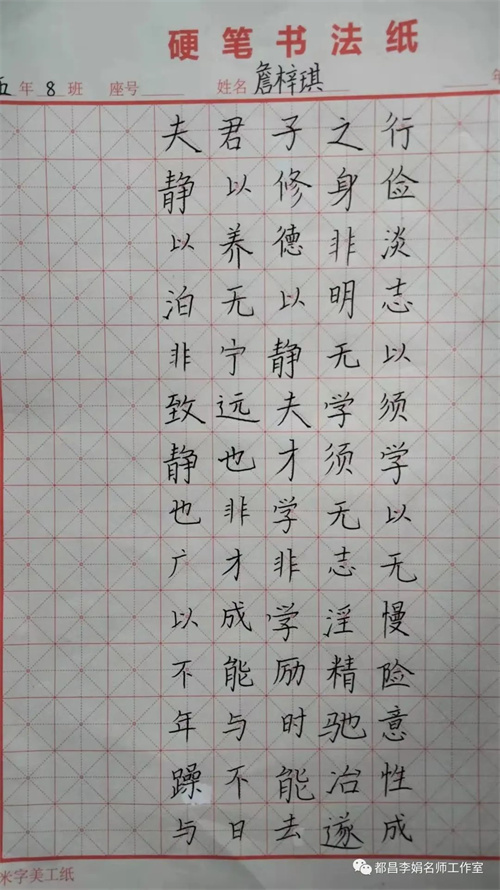 硬笔书法纸
五年8班 座号 姓名 詹梓琪 年
夫君子之行
静以修身俭
以养德非淡
泊无以明志
非宁静无以
致远夫学须
静也才须学
也非学无以
广才非志无
以成学淫慢
不能励精险
年与时驰意
躁不能冶性
与日去遂成
米字美工纸
都昌李娟名师工作室